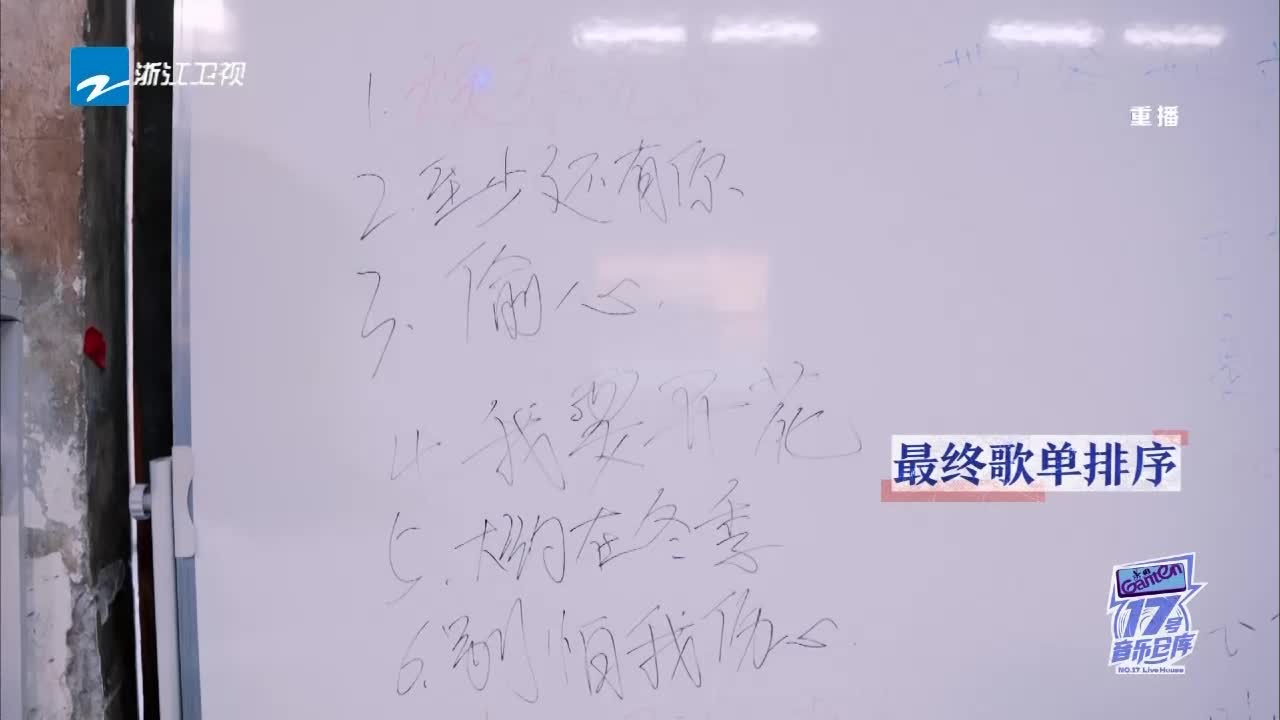 浙江卫视
重播
1.
2.至少还有你
3.偷心.
4.我要开花
5.大约在冬季
6.别怕我伤心.
最终歌单排序
Ganten
17号
音乐仓库
NO.17 Live House